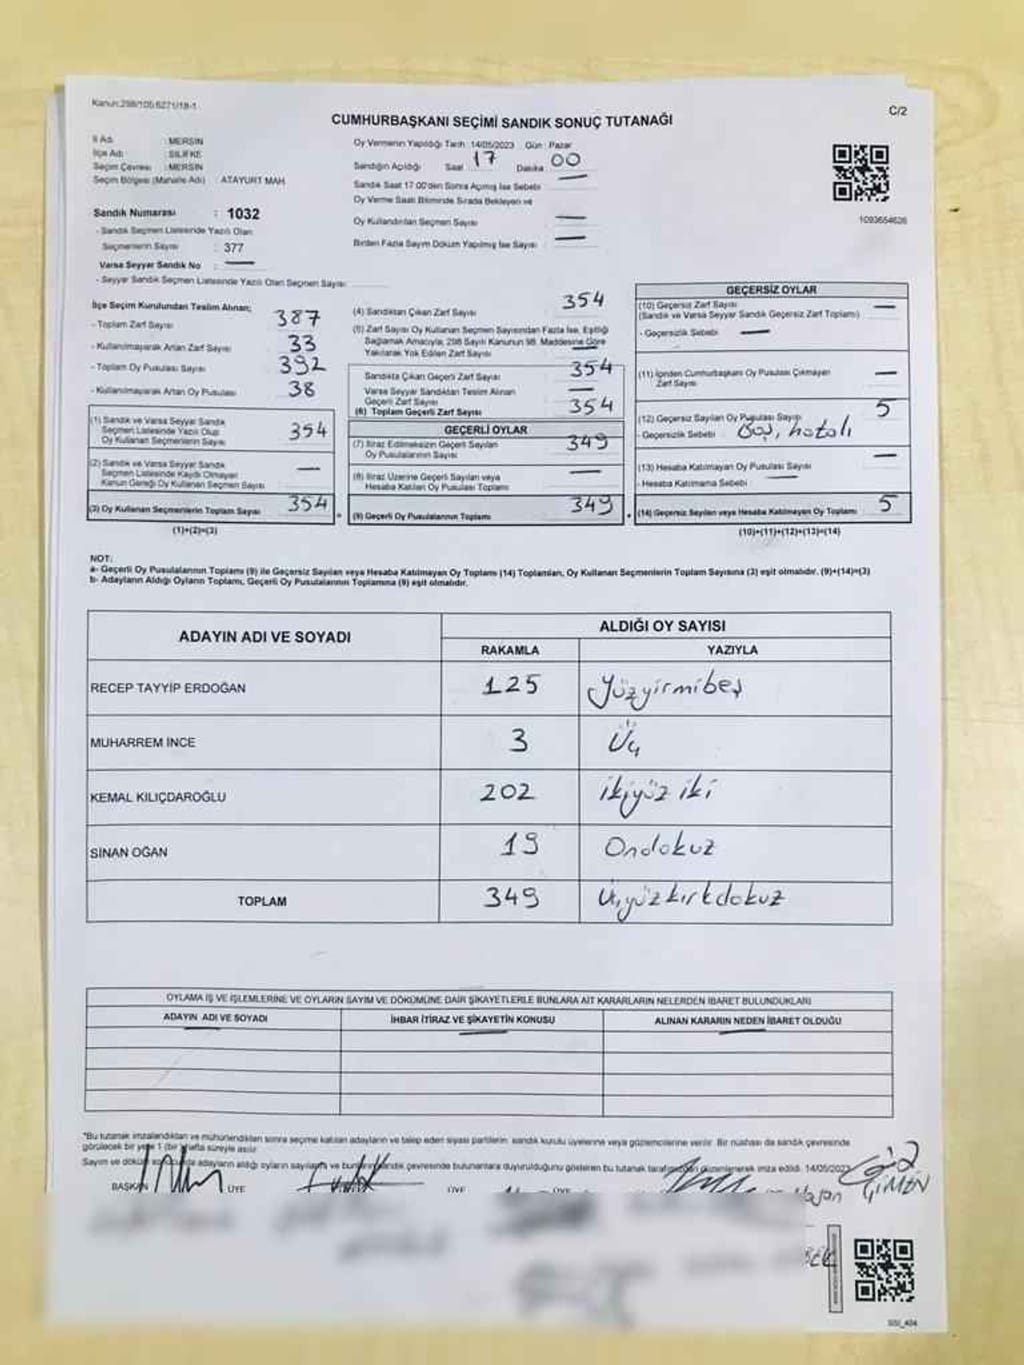 Kanun:298/105;6271/18-1
C/2
CUMHURBAŞKANI SEÇİMİ SANDIK SONUÇ TUTANAĞI
İl Adı : MERSİN
İlçe Adı : SİLİFKE
Seçim Çevresi : MERSİN
Seçim Bölgesi (Mahalle Adı) : ATAYURT MAH
Sandık Numarası : 1032
- Sandık Seçmen Listesinde Yazılı Olan
Seçmenlerin Sayısı : 377
Varsa Seyyar Sandık No : —
- Seyyar Sandık Seçmen Listesinde Yazılı Olan Seçmen Sayısı:
Oy Vermenin Yapıldığı Tarih 14/05/2023 Gün : Pazar
Sandığın Açıldığı Saat 17 Dakika 00
Sandık Saat 17.00'den Sonra Açılmış İse Sebebi —
Oy Verme Saati Bitiminde Sırada Bekleyen ve
Oy Kullandırılan Seçmen Sayısı —
Birden Fazla Sayım Döküm Yapılmış İse Sayısı —
1093654626
İlçe Seçim Kurulundan Teslim Alınan;
- Toplam Zarf Sayısı 387
- Kullanılmayarak Artan Zarf Sayısı 33
- Toplam Oy Pusulası Sayısı 392
- Kullanılmayarak Artan Oy Pusulası 38
(1) Sandık ve Varsa Seyyar Sandık
Seçmen Listesinde Yazılı Olup
Oy Kullanan Seçmenlerin Sayısı 354
(2) Sandık ve Varsa Seyyar Sandık
Seçmen Listesinde Kaydı Olmayan
Kanun Gereği Oy Kullanan Seçmen Sayısı —
(3) Oy Kullanan Seçmenlerin Toplam Sayısı 354
(1)+(2)=(3)
(4) Sandıktan Çıkan Zarf Sayısı 354
(5) Zarf Sayısı Oy Kullanan Seçmen Sayısından Fazla İse, Eşitliği
Sağlamak Amacıyla, 298 Sayılı Kanunun 98. Maddesine Göre
Yakılarak Yok Edilen Zarf Sayısı —
Sandıkta Çıkan Geçerli Zarf Sayısı 354
Varsa Seyyar Sandıktan Teslim Alınan
Geçerli Zarf Sayısı —
(6) Toplam Geçerli Zarf Sayısı 354
GEÇERLİ OYLAR
(7) İtiraz Edilmeksizin Geçerli Sayılan
Oy Pusulalarının Sayısı 349
(8) İtiraz Üzerine Geçerli Sayılan veya
Hesaba Katılan Oy Pusulası Toplamı —
(9) Geçerli Oy Pusulalarının Toplamı 349
GEÇERSİZ OYLAR
(10) Geçersiz Zarf Sayısı —
(Sandık ve Varsa Seyyar Sandık Geçersiz Zarf Toplamı)
- Geçersizlik Sebebi: —
(11) İçinden Cumhurbaşkanı Oy Pusulası Çıkmayan
Zarf Sayısı —
(12) Geçersiz Sayılan Oy Pusulası Sayısı 5
- Geçersizlik Sebebi : Boş, hatalı
(13) Hesaba Katılmayan Oy Pusulası Sayısı —
- Hesaba Katılmama Sebebi : —
(14) Geçersiz Sayılan veya Hesaba Katılmayan Oy Toplamı 5
(10)+(11)+(12)+(13)=(14)
NOT:
a- Geçerli Oy Pusulalarının Toplamı (9) ile Geçersiz Sayılan veya Hesaba Katılmayan Oy Toplamı (14) Toplamları, Oy Kullanan Seçmenlerin Toplam Sayısına (3) eşit olmalıdır. (9)+(14)=(3)
b- Adayların Aldığı Oyların Toplamı, Geçerli Oy Pusulalarının Toplamına (9) eşit olmalıdır.
ADAYIN ADI VE SOYADI
ALDIĞI OY SAYISI
RAKAMLA YAZIYLA
RECEP TAYYİP ERDOĞAN 125 Yüzyirmibeş
MUHARREM İNCE 3 Üç
KEMAL KILIÇDAROĞLU 202 ikiyüz iki
SİNAN OĞAN 19 Ondokuz
TOPLAM 349 Üçyüzkırkdokuz
OYLAMA İŞ VE İŞLEMLERİNE VE OYLARIN SAYIM VE DÖKÜMÜNE DAİR ŞİKAYETLERLE BUNLARA AİT KARARLARIN NELERDEN İBARET BULUNDUKLARI
ADAYIN ADI VE SOYADI İHBAR İTİRAZ VE ŞİKAYETİN KONUSU ALINAN KARARIN NEDEN İBARET OLDUĞU
*Bu tutanak imzalandıktan ve mühürlendikten sonra seçime katılan adayların ve talep eden siyasi partilerin sandık kurulu üyelerine veya gözlemcilerine verilir. Bir nüshası da sandık çevresinde
görülecek bir yere 1 (bir) hafta süreyle asılır.
Sayım ve döküm adayların aldığı oyların sayılarını ve bunların sandık çevresinde bulunanlara duyurulduğunu gösteren bu tutanak tarafımızdan düzenlenerek imza edildi. 14/05/2023
BAŞKAN ÜYE ÜYE ÜYE
ÇİMEN